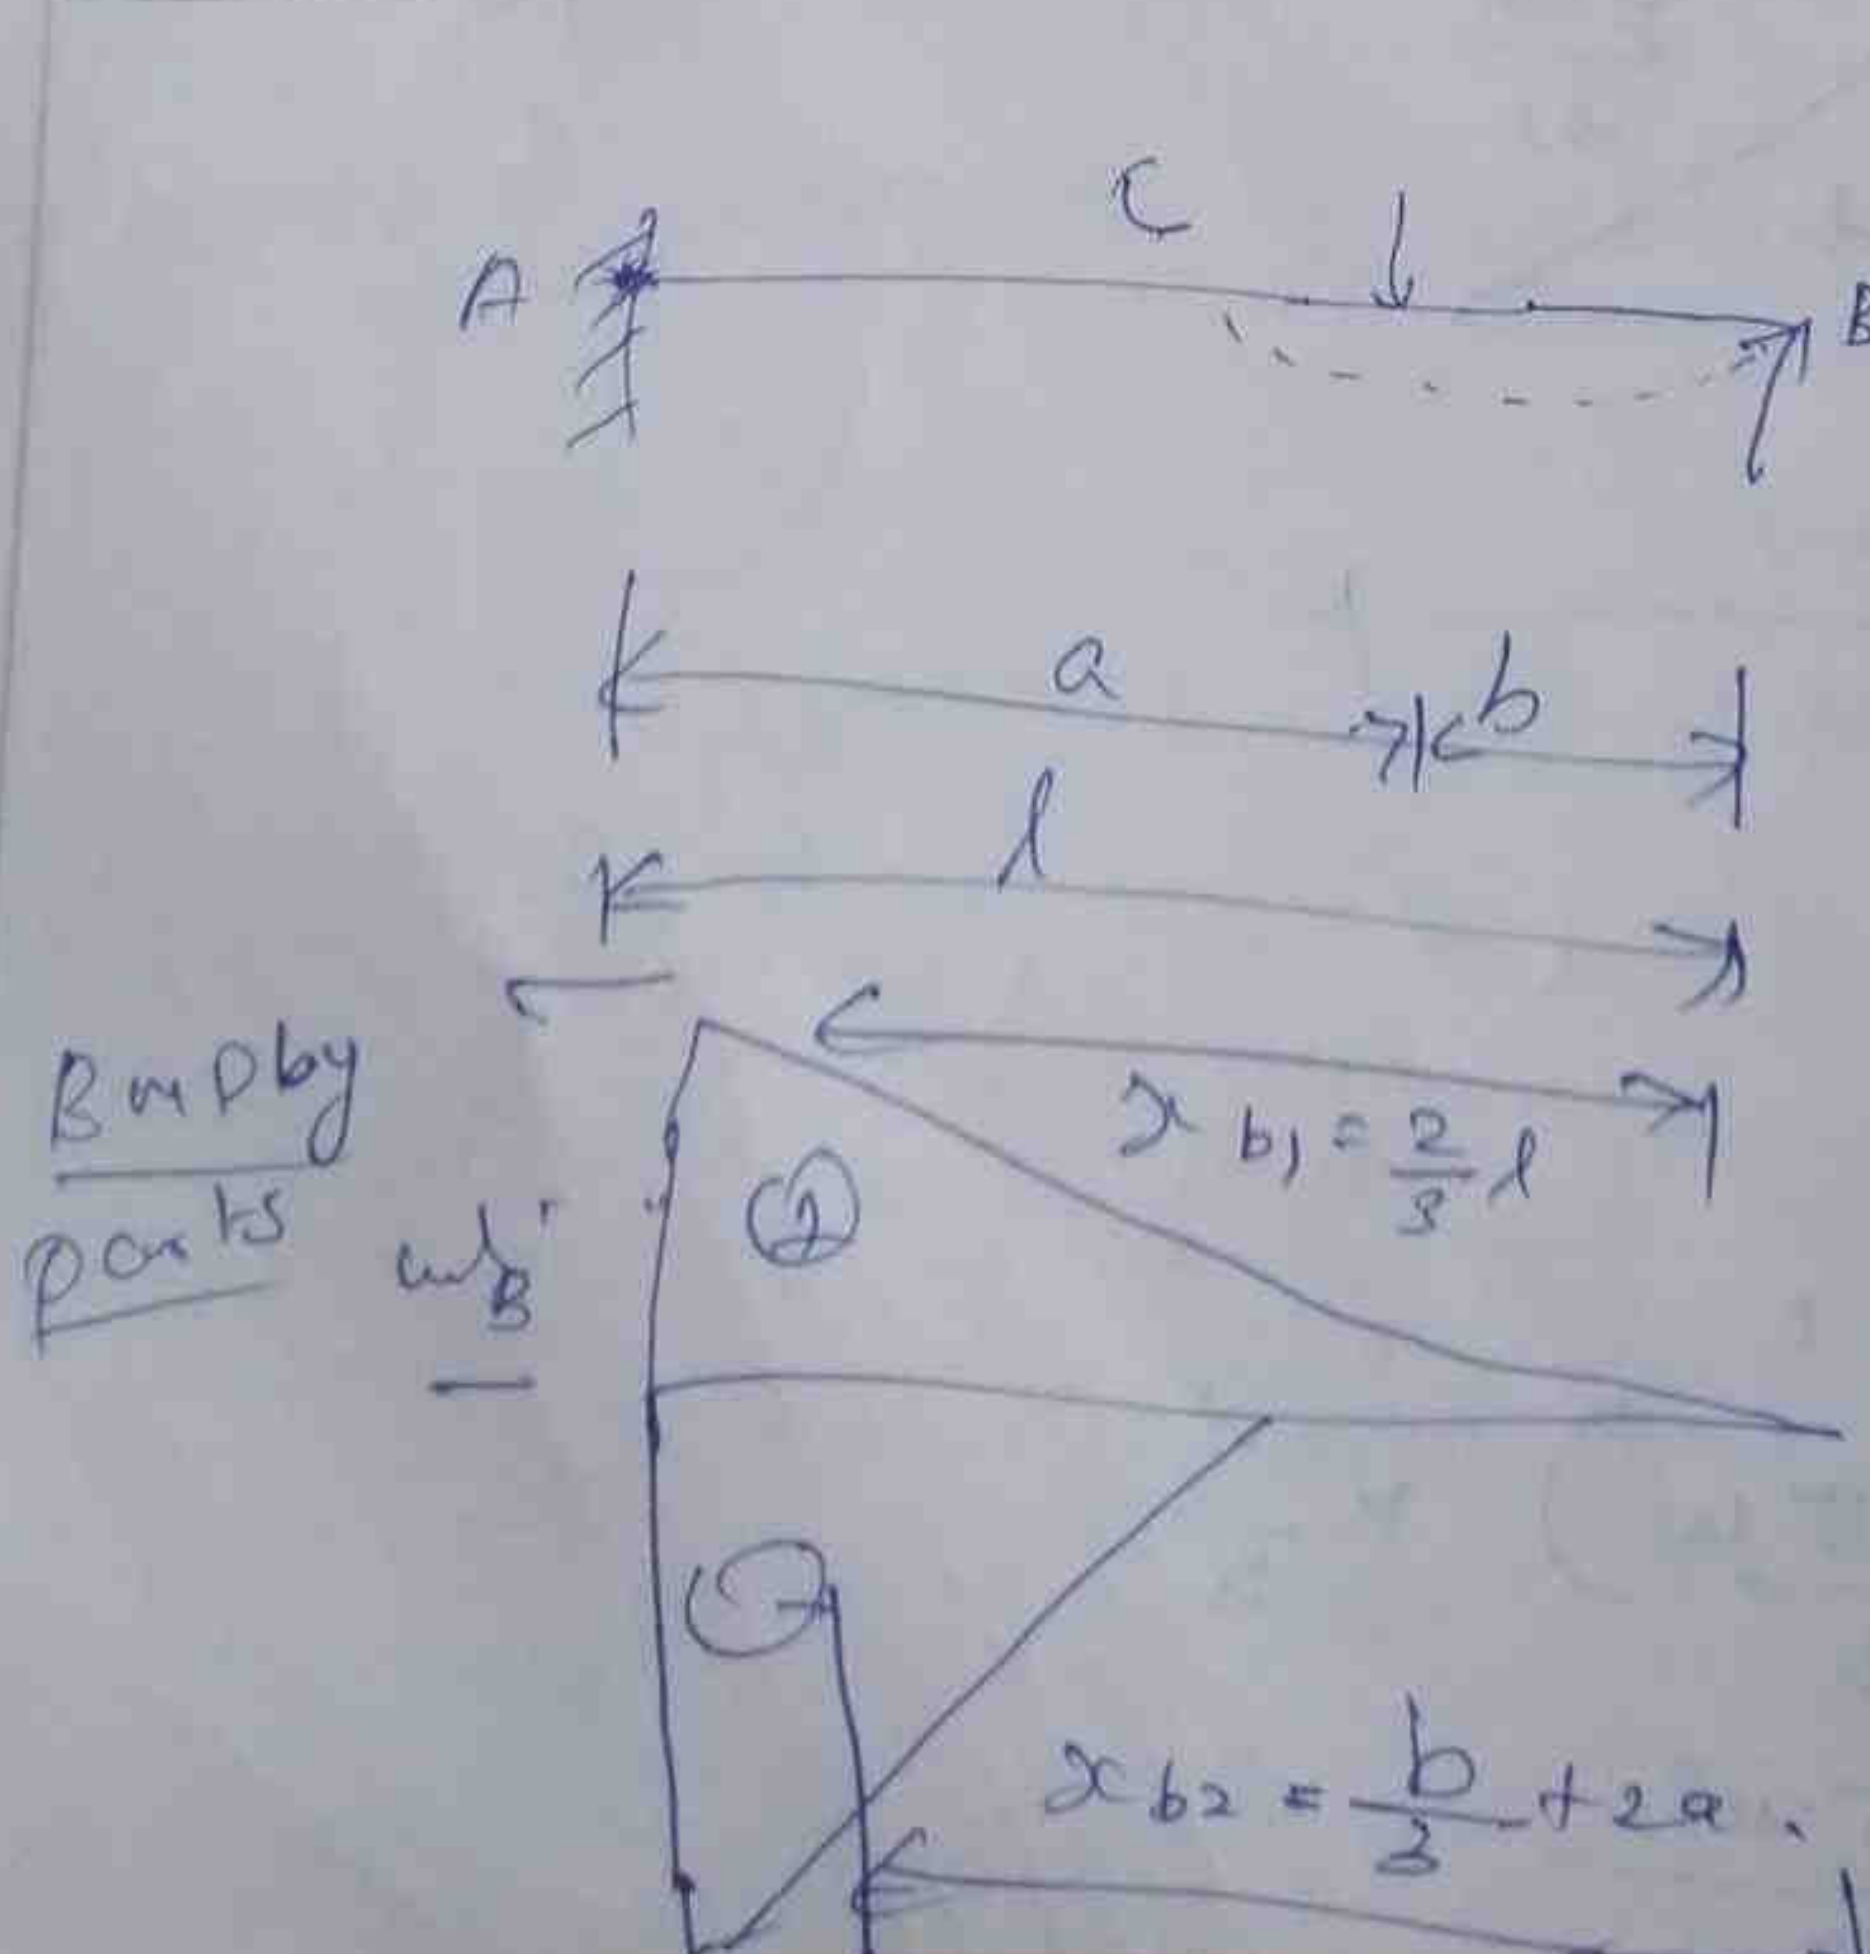 C
A
B
a
b
l
BMD by
parts
x b1 = 2/3 l
2
x b2 = b/3 + 2a